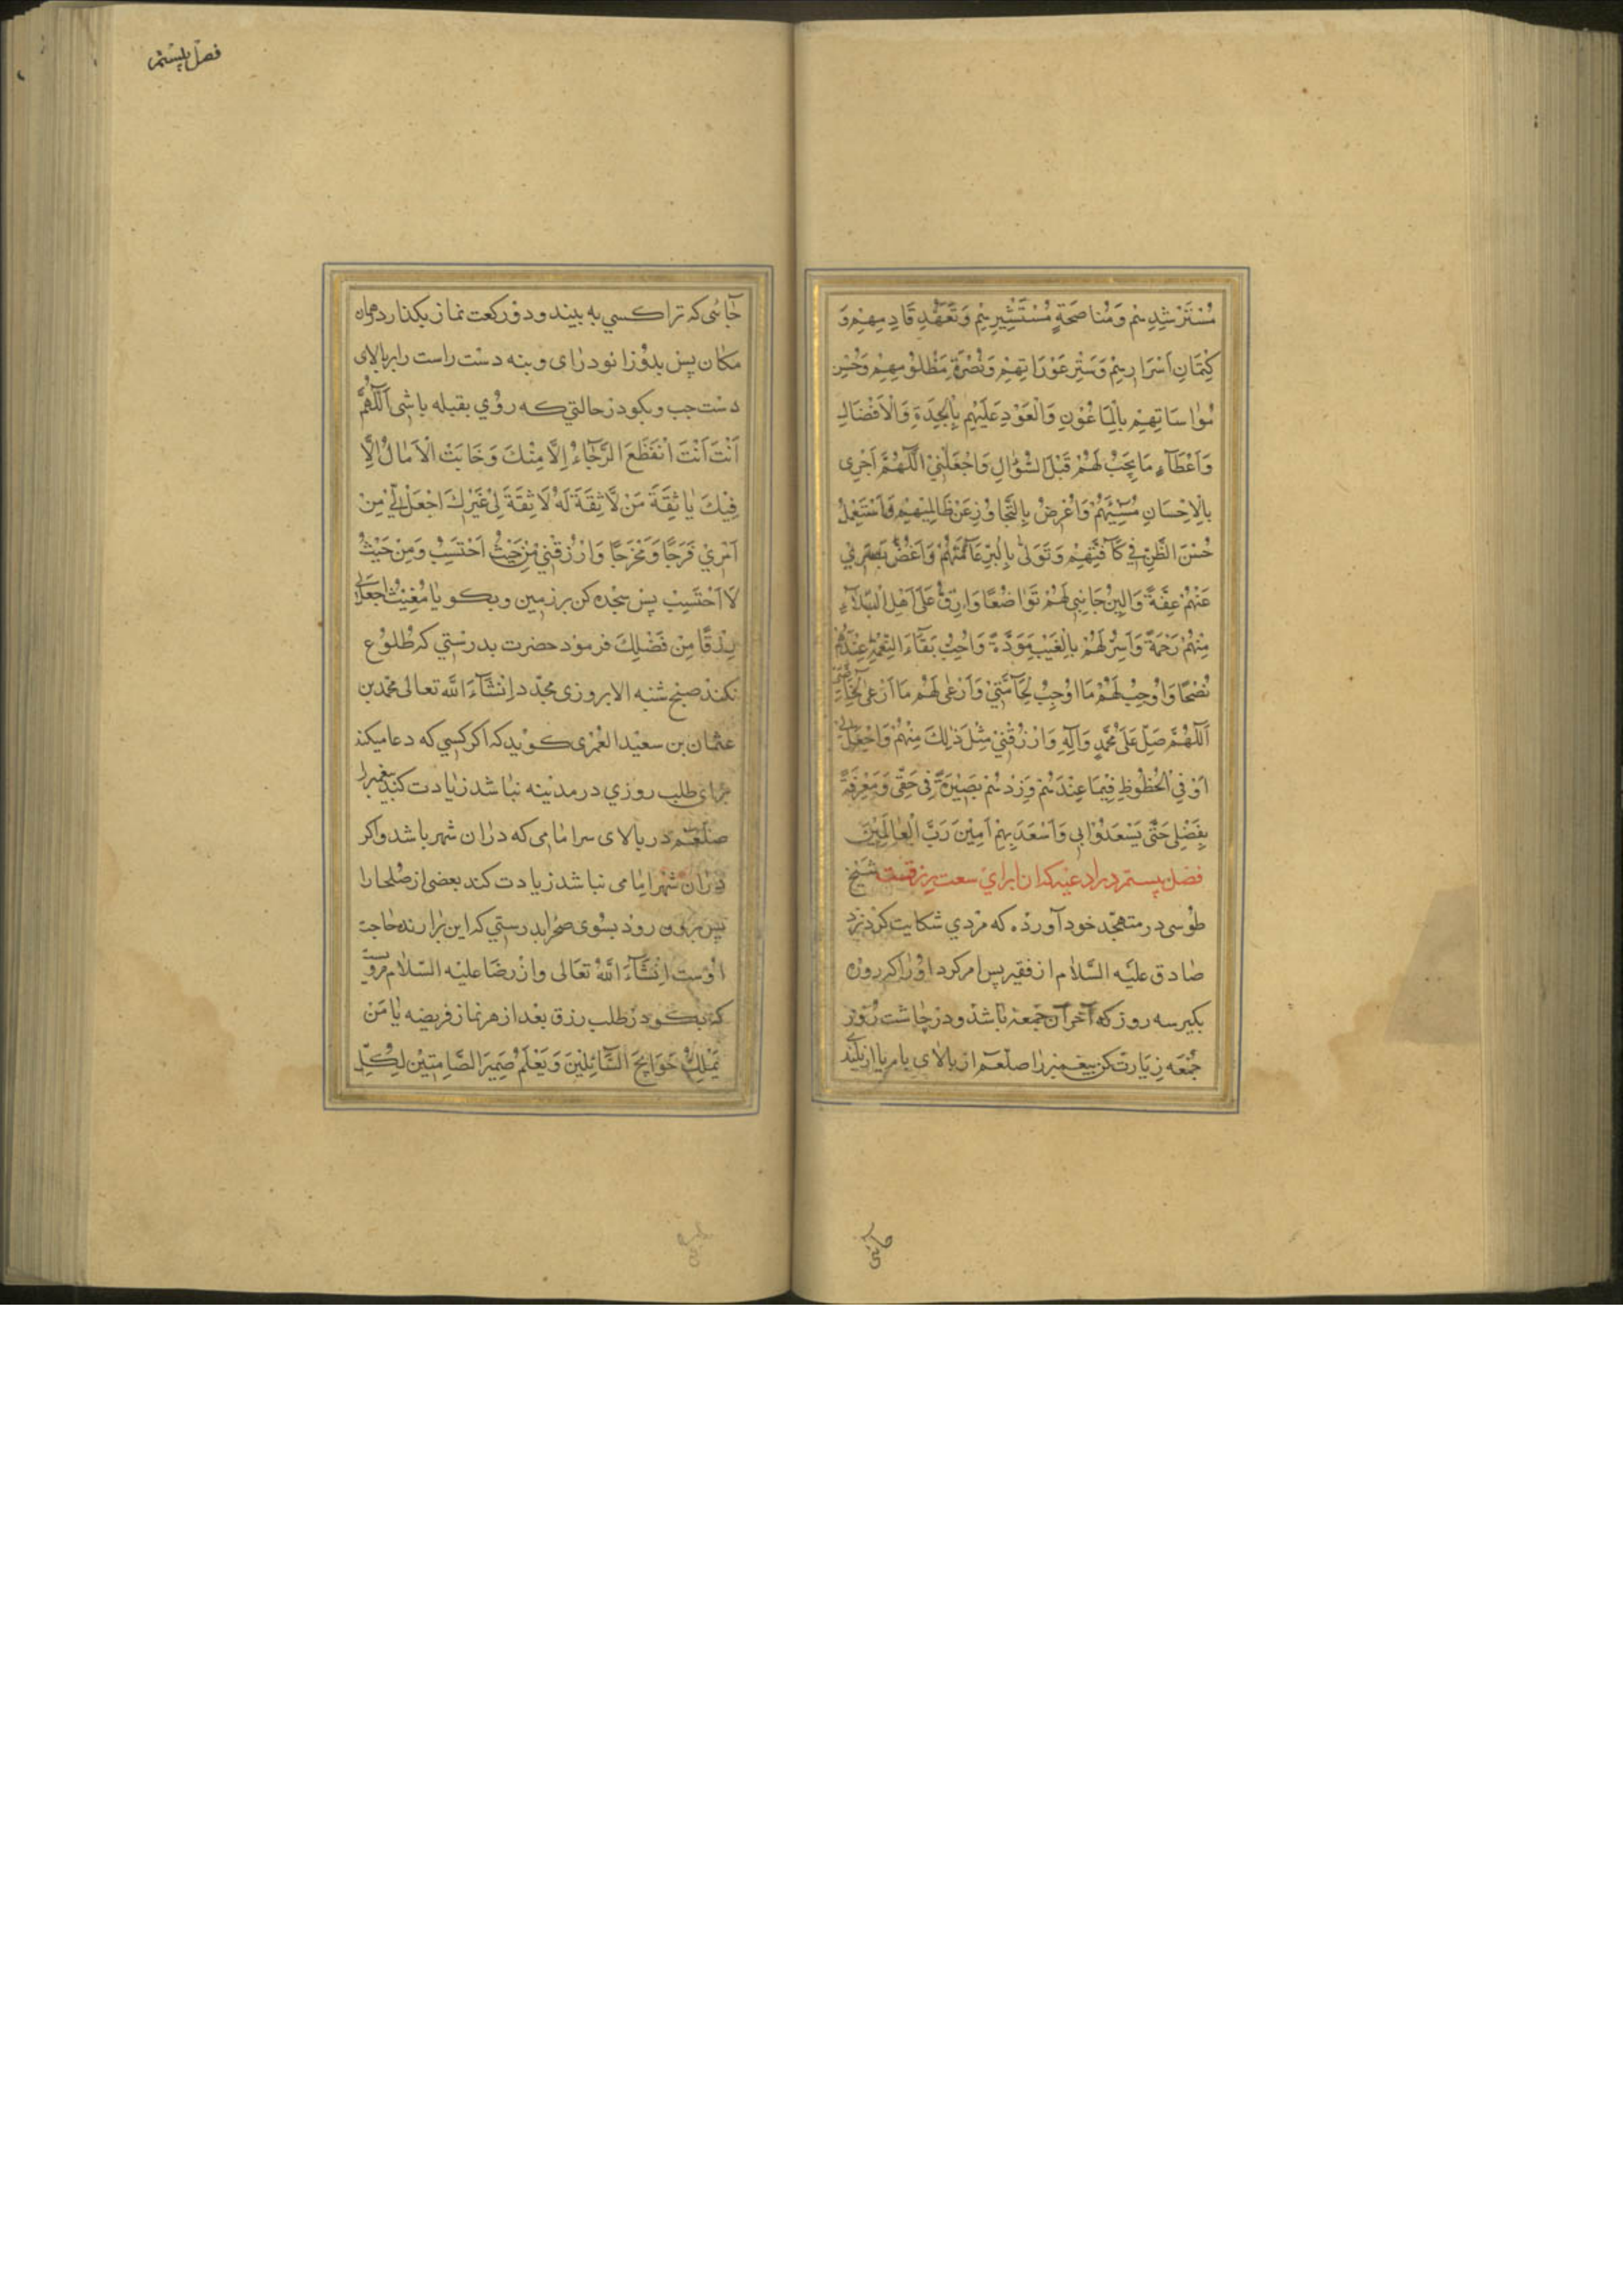 مُسْتَرْشِدِيهِمْ وَمُنَاصَحَةِ مُسْتَشِيرِيهِمْ وَتَعَهُّدِ قَادِمِهِمْ وَ
كِتْمَانِ اَسْرَارِهِمْ وَسَتْرِ عَوْرَاتِهِمْ وَنُصْرَةِ مَظْلُومِهِمْ وَحُسْنِ
مُوَاسَاتِهِمْ بِالْمَاعُونِ وَالْعَوْدِ عَلَيْهِمْ بِالْجِدَةِ وَالْاَفْضَالِ
وَاَعْطَآءِ مَا يَجِبُ لَهُمْ قَبْلَ السُّؤَالِ وَاجْعَلْنِيْ اَللّٰهُمَّ اَجْزِى
بِالْاِحْسَانِ مُسِيْئَهُمْ وَاُعْرِضُ بِالتَّجَاوُزِ عَنْ ظَالِمِيْهِمْ وَاَسْتَعْمِلُ
حُسْنَ الظَّنِّ فِي كَآفَّتِهِمْ وَتَوَلّٰى بِالْبِرِّ عَآمَّتَهُمْ وَاَغُضُّ بَصَرِيْ
عَنْهُمْ عِفَّةً وَاُلِيْنُ جَانِبِى لَهُمْ تَوَاضُعًا وَارِقُّ عَلٰى اَهْلِ الْبَلَآءِ
مِنْهُمْ رَحْمَةً وَاُسِرُّ لَهُمْ بِالْغَيْبِ مَوَدَّةً وَاُحِبُّ بَقَآءَ النِّعْمَةِ عِنْدَهُمْ
نُصْحًا وَاُوْجِبُ لَهُمْ مَا اُوْجِبُ لِحَآمَّتِيْ وَاَرْعٰى لَهُمْ مَا اَرْعٰى لِخَاصَّتِيْ
اَللّٰهُمَّ صَلِّ عَلٰى مُحَمَّدٍ وَآلِهٖ وَارْزُقْنِيْ مِثْلَ ذٰلِكَ مِنْهُمْ وَاجْعَلْ لِيْ
اَوْفَى الْحُظُوظِ فِيْمَا عِنْدَهُمْ وَزِدْهُمْ بَصِيْرَةً فِى حَقِّى وَمَعْرِفَةً
بِفَضْلِى حَتّٰى يَسْعَدُوْا بِى وَاَسْعَدَ بِهِمْ اٰمِيْنَ رَبَّ الْعَالَمِيْنَ
فصل بيستم در ادعيه كه ان براي سعت رزقست شيخ
طوسى در متهجد خود آورده كه مردي شكايت كرد نزد
صادق عليه السّلام از فقر پس امر كرد او را كه روزه
بگير سه روز كه آخر آن جمعه باشد و در چاشت روز
جمعه زيارت كن پيغمبر را صلعم از بالاى بام يا از بلند
حائى
فصل بيستم
جائى كه ترا كسي به بيند و دو ركعت نماز بكذار در همان
مكان پس بدوزانو دراى و بنه دست راست را بر بالاى
دست چپ و بكو در حالتي كه روي بقبله باشى اَللّٰهُمَّ
اَنْتَ اَنْتَ انْقَطَعَ الرَّجَاءُ اِلَّا مِنْكَ وَخَابَتْ الْاٰمَالُ اِلَّا
فِيْكَ يَا ثِقَةَ مَنْ لَا ثِقَةَ لَهُ لَا ثِقَةَ لِىْ غَيْرُكَ اجْعَلْ لِّيْ مِنْ
اَمْرِيْ فَرَجًا وَمَخْرَجًا وَارْزُقْنِيْ مِنْ حَيْثُ اَحْتَسِبُ وَمِنْ حَيْثُ
لَا اَحْتَسِبُ پس سجده كن بر زمين و بكو يَا مُغِيْثُ اجْعَلْ لِى
رِزْقًا مِنْ فَضْلِكَ فرمود حضرت بدرستي كه طلوع
نكند صبح شنبه الا بروزى مجدد اِنْشَآءَ اللّٰه تعالى محمد بن
عثمان بن سعيد العمرى كويد كه اكر كسي كه دعا ميكند
براى طلب روزي در مدينه نباشد زيادت كند پيغمبر را
صلعم در بالاى سر امامى كه در ان شهر باشد و اكر
در ان شهر امامى نباشد زيادت كند بعضى از صلحا را
پس برون رود بسوى صحرا بدرستي كه اين برارنده حاجت
اوست اِنْشَآءَ اللّٰهُ تَعَالٰى و از رضا عليه السّلام مرويست
كه بكو در طلب رزق بعد از هر نماز فريضه يَا مَنْ
يَمْلِكُ حَوَايِجَ السَّآئِلِيْنَ وَيَعْلَمُ ضَمِيْرَ الصَّامِتِيْنَ لِكُلِّ